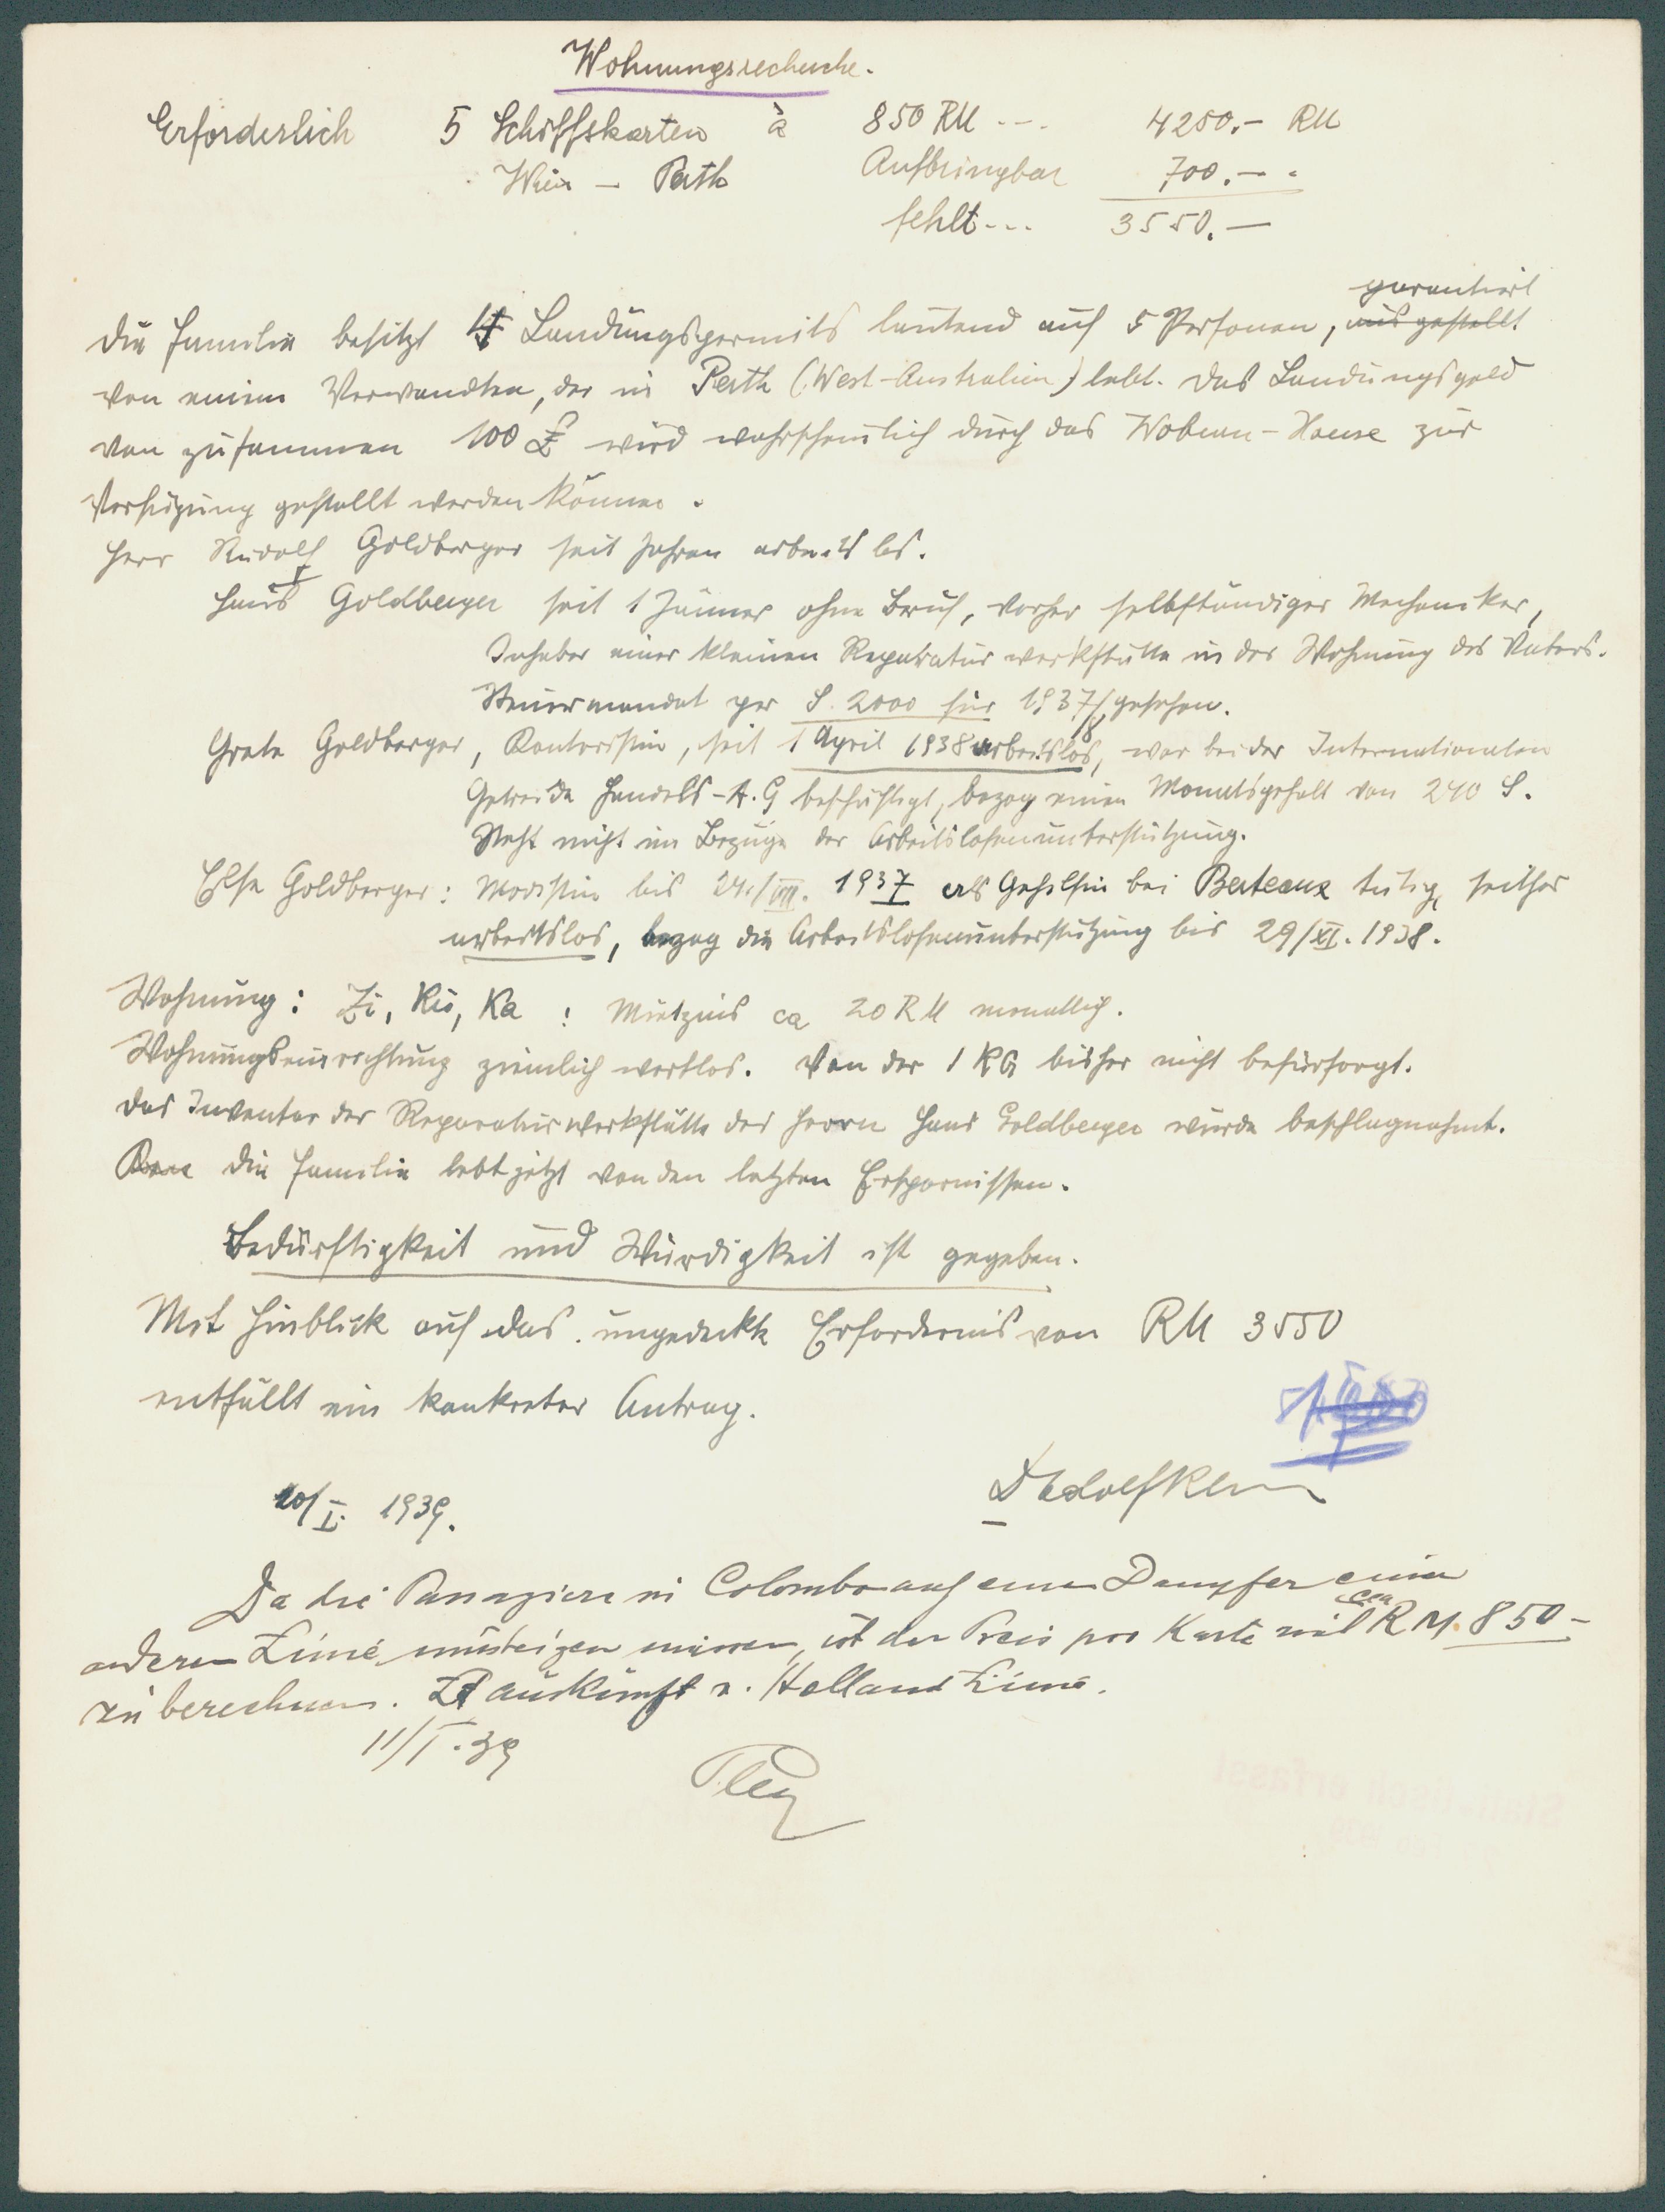 Wohnungsrecherche.
Erforderlich 5 Schiffskarten à 850 RM --- 4250.- RM
Wien - Perth Aufbringbar 700.- -
fehlt --- 3550.-
garantiert
Die Familie besitzt 4 Landungspermits lautend auf 5 Personen, ausgestellt
von einem Verwandten, der in Perth (West-Australien) lebt. Das Landungsgeld
von zusammen 100 £ wird wahrscheinlich durch das Woburn-House zur
Verfügung gestellt werden können.
Herr Rudolf Goldberger seit Jahren arbeitslos.
Hans Goldberger seit 1 Jänner ohne Beruf, vorher selbständiger Mechaniker,
Inhaber einer kleinen Reparaturwerkstätte in der Wohnung des Vaters.
Steuermandat per S. 2000 für 1937/8 gesehen.
Grete Goldberger, Kontoristin, seit 1 April 1938 arbeitslos, war bei der Internationalen
Getreide Handels-A.G beschäftigt, bezog einen Monatsgehalt von 240 S.
Steht nicht im Bezuge der Arbeitslosenunterstützung.
Else Goldberger: Modistin bis 24./VII. 1937 als Gehilfin bei Berteaux tätig, seither
arbeitslos, bezog die Arbeitslosenunterstützung bis 29/XI. 1938.
Wohnung: Zi, Kü, Ka : Mietzins ca 20 RM monatlich.
Wohnungseinrichtung ziemlich wertlos. Von der IKG bisher nicht befürsorgt.
Das Inventar der Reparaturwerkstätte des Herrn Hans Goldberger wurde beschlagnahmt.
Die Familie lebt jetzt von den letzten Ersparnissen.
Bedürftigkeit und Würdigkeit ist gegeben.
Mit Hinblick auf das ungedeckte Erfordernis von RM 3550
entfällt ein konkreter Antrag.
10/I. 1939.
Da die Passagiere in Colombo auf einen Dampfer einer
anderen Linie umsteigen müssen, ist der Preis pro Karte mit ca RM. 850-
zu berechnen. Lt Auskunft v. Holland Linie.
11/I.39